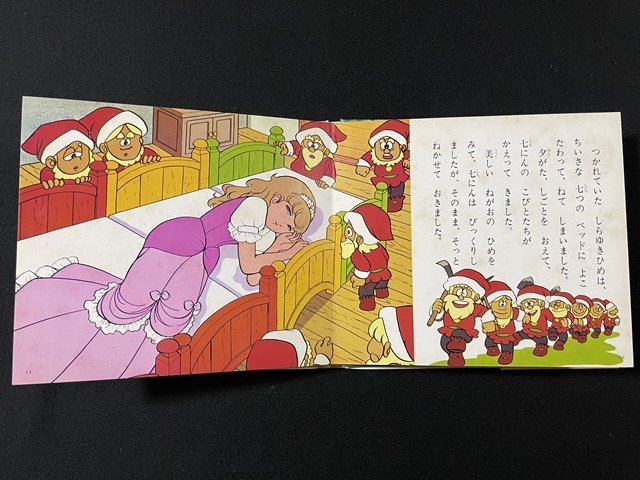 つかれていた しらゆきひめは、
ちいさな 七つの ベッドに よこ
たわって、ねて しまいました。
夕がた、しごとを おえて、
七にんの こびとたちが
かえって きました。
美しい ねがおの ひめを
みて、七にんは びっくりし
ましたが、そのまま、そっと
ねかせて おきました。
11